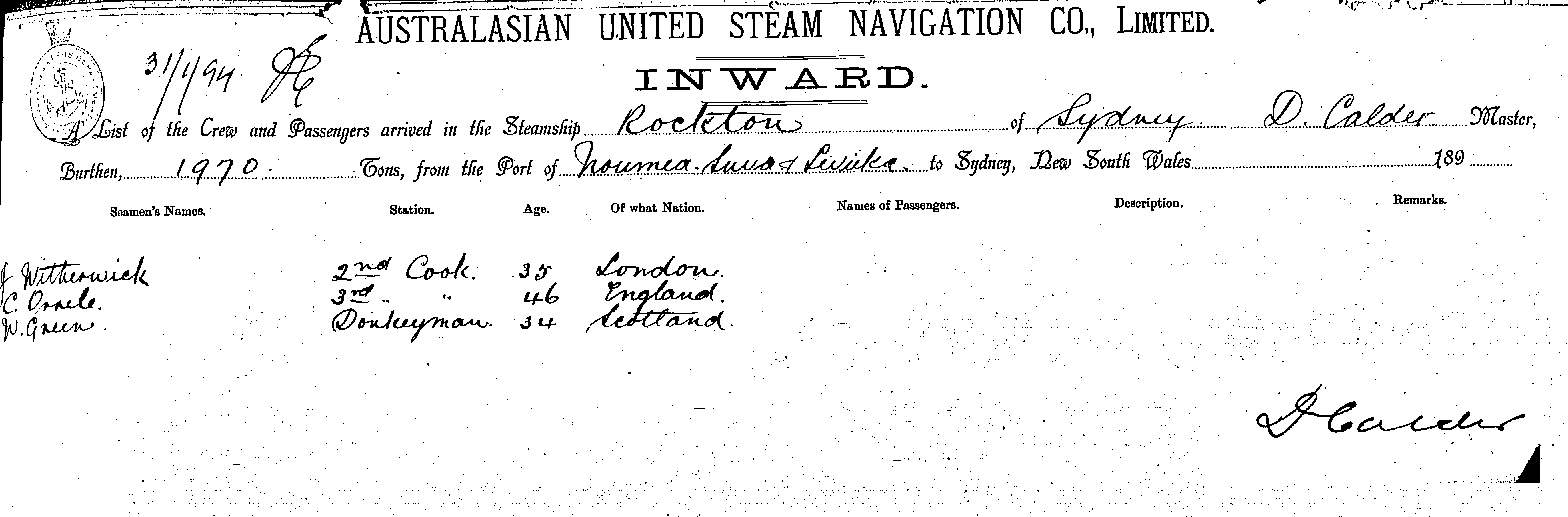 AUSTRALASIAN UNITED STEAM NAVIGATION CO., LIMITED.
31/1/94
INWARD.
A List of the Crew and Passengers arrived in the Steamship Rockton of Sydney D. Calder Master,
Burthen, 1970. Tons, from the Port of Noumea. Suva & Levuka. to Sydney, New South Wales 189
Seamen's Names. Station. Age. Of what Nation. Names of Passengers. Description. Remarks.
J Witherwick 2nd Cook. 35 London.
C. 3rd " 46 England.
W. Green. Donkeyman. 34 Scotland.
D Calder